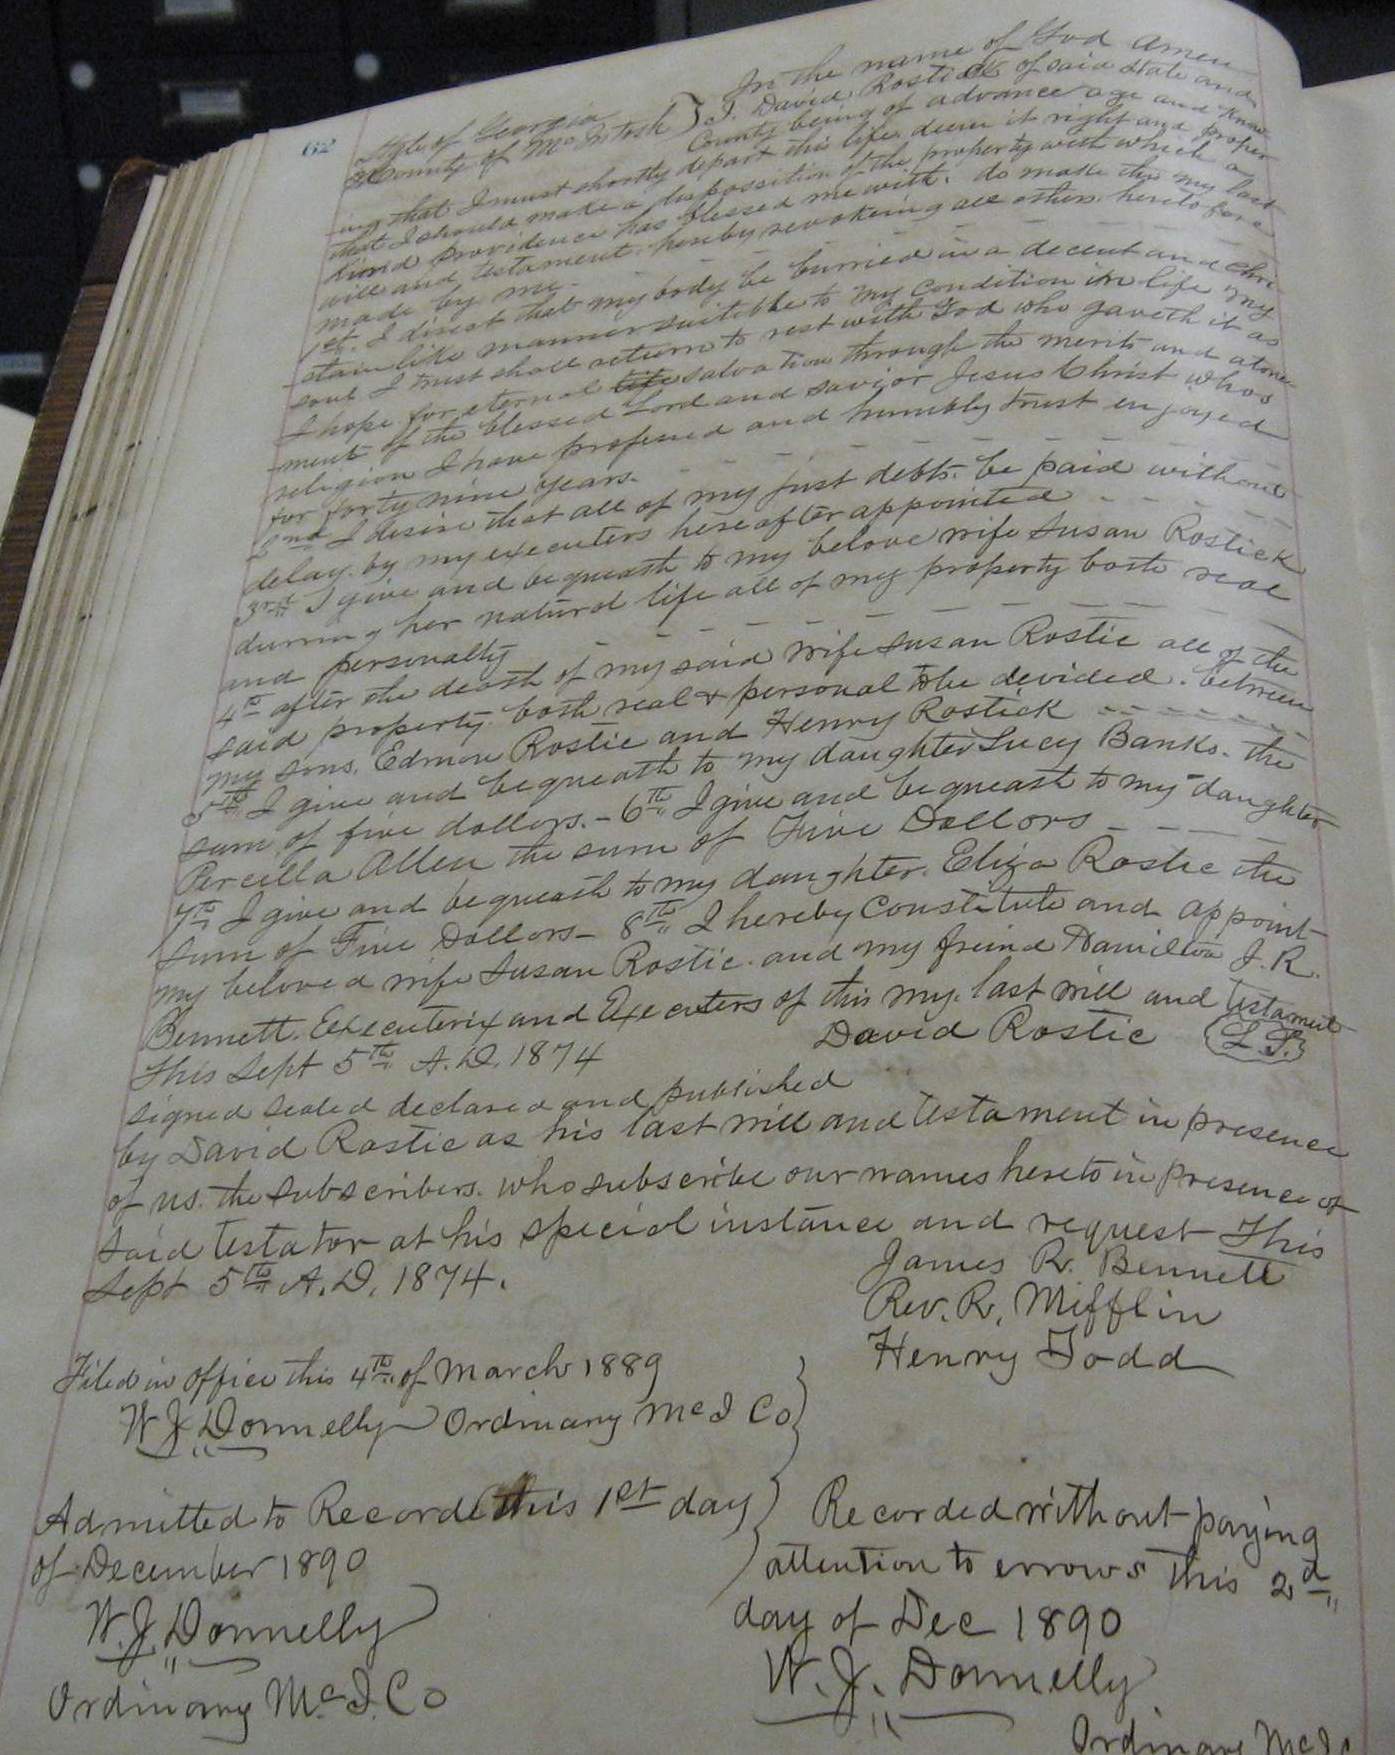 62
State of Georgia
County of McIntosh } In the name of God Amen
I, David Rostick of said State and
County being of advance age and know-
ing that I must shortly depart this life, deem it right and proper
that I should make a dispossition of the property with which a
kind providence has blessed me with. do make this my last
will and testament. hereby revokeing all others heretofore
made by me.
1st. I direct that my body be burried in a decent and chri-
stain like manner suitible to my condition in life my
soul I trust shall return to rest with God who gaveth it as
I hope for eternal life salvation through the merits and atone-
ment of the blessed Lord and savior Jesus Christ whos
religion I have professed and humbly trust enjoyed
for forty nine years.
2nd I desire that all of my just debts. be paid without
delay. by my executers hereafter appointed
3rd I give and bequeath to my belove wife Susan Rostick
durring her natural life all of my property both real
and personalty
4th after the death of my said wife Susan Rostic all of the
said property both real & personal to be devided. between
my sons. Edmon Rostic and Henry Rostick
5th I give and bequeath to my daughter Lucy Banks. the
sum of five dollars. - 6th I give and bequeast to my daughter
Percilla Allen the sum of Five Dollors
7th I give and bequeath to my daughter. Eliza Rostic the
sum of Five Dollors - 8th I hereby Constitute and appoint
my beloved wife Susan Rostic. and my freind Hamilton J. R.
Bennett. Executerix and Executers of this my. last will and testament
this Sept 5th A.D. 1874
David Rostic (L.S.)
signed sealed declared and published
by David Rostic as his last will and testament in presence
of us. the subscribers. who subscribe our names hereto in presence of
said testator at his special instance and request This
Sept 5th A.D. 1874.
James R. Bennett
Rev. R. Mifflin
Henry Todd
Filed in office this 4th of March 1889
W. J. Donnelly Ordinary McI Co
Admitted to Record this 1st day
of December 1890
W. J. Donnelly
Ordinary Mc.I. Co
Recorded without paying
attention to errows this 2d
day of Dec 1890
W. J. Donnelly
Ordinary McI